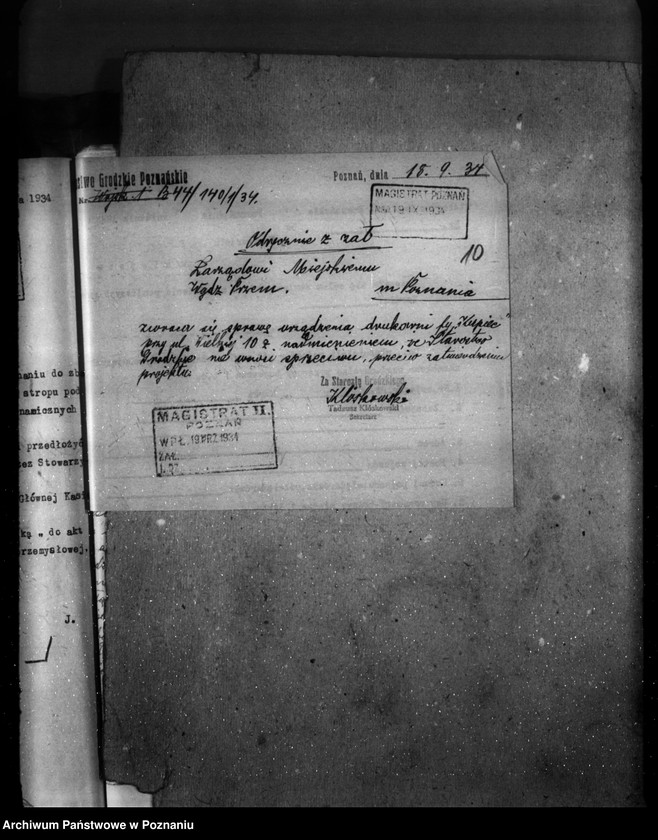 a 1934
naniu do zb
atropu pod
namicznych
przedłożyć
ez Stowarzy
Głównej Kas
ką „ do akt
rzemysłowej.
J.
two Grodzkie Poznańskie
Poznań, dnia 18. 9. 34
Nr. 44/140/1/34.
MAGISTRAT POZNAŃ
19 IX 1934
10
Odręcznie z zał
Zarządowi Miejskiemu
Wydz Przem.
m Poznania
zwraca się sprawę urządzenia drukarni fy. „Kupiec"
przy ul. 10 z nadmienieniem, że Starostwo
Grodzkie nie wnosi sprzeciwu, przeciw zatwierdzeniu
projektu.
Za Starostę Grodzkiego
Kłóskowski
Tadeusz Kłóskowski
MAGISTRAT II.
POZNAŃ
WPŁ. 19 WRZ. 1934
ZAŁ.
Archiwum Państwowe w Poznaniu